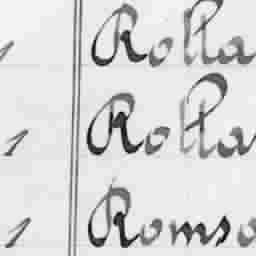 Rolla
1 Rolla
1 Romso